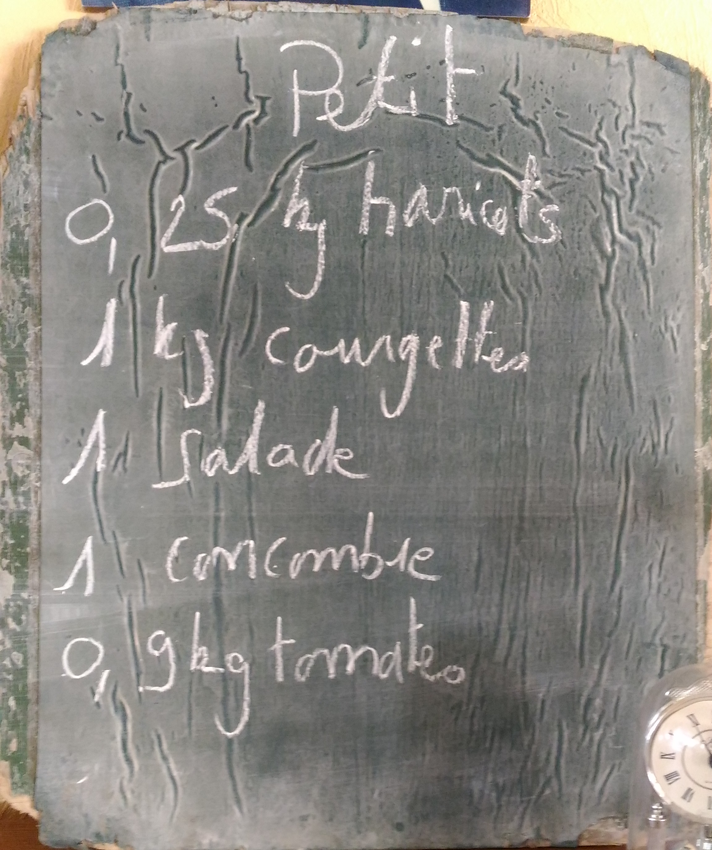 Petit
0,25 kg haricots
1 kg courgettes
1 salade
1 concombre
0,9 kg tomates